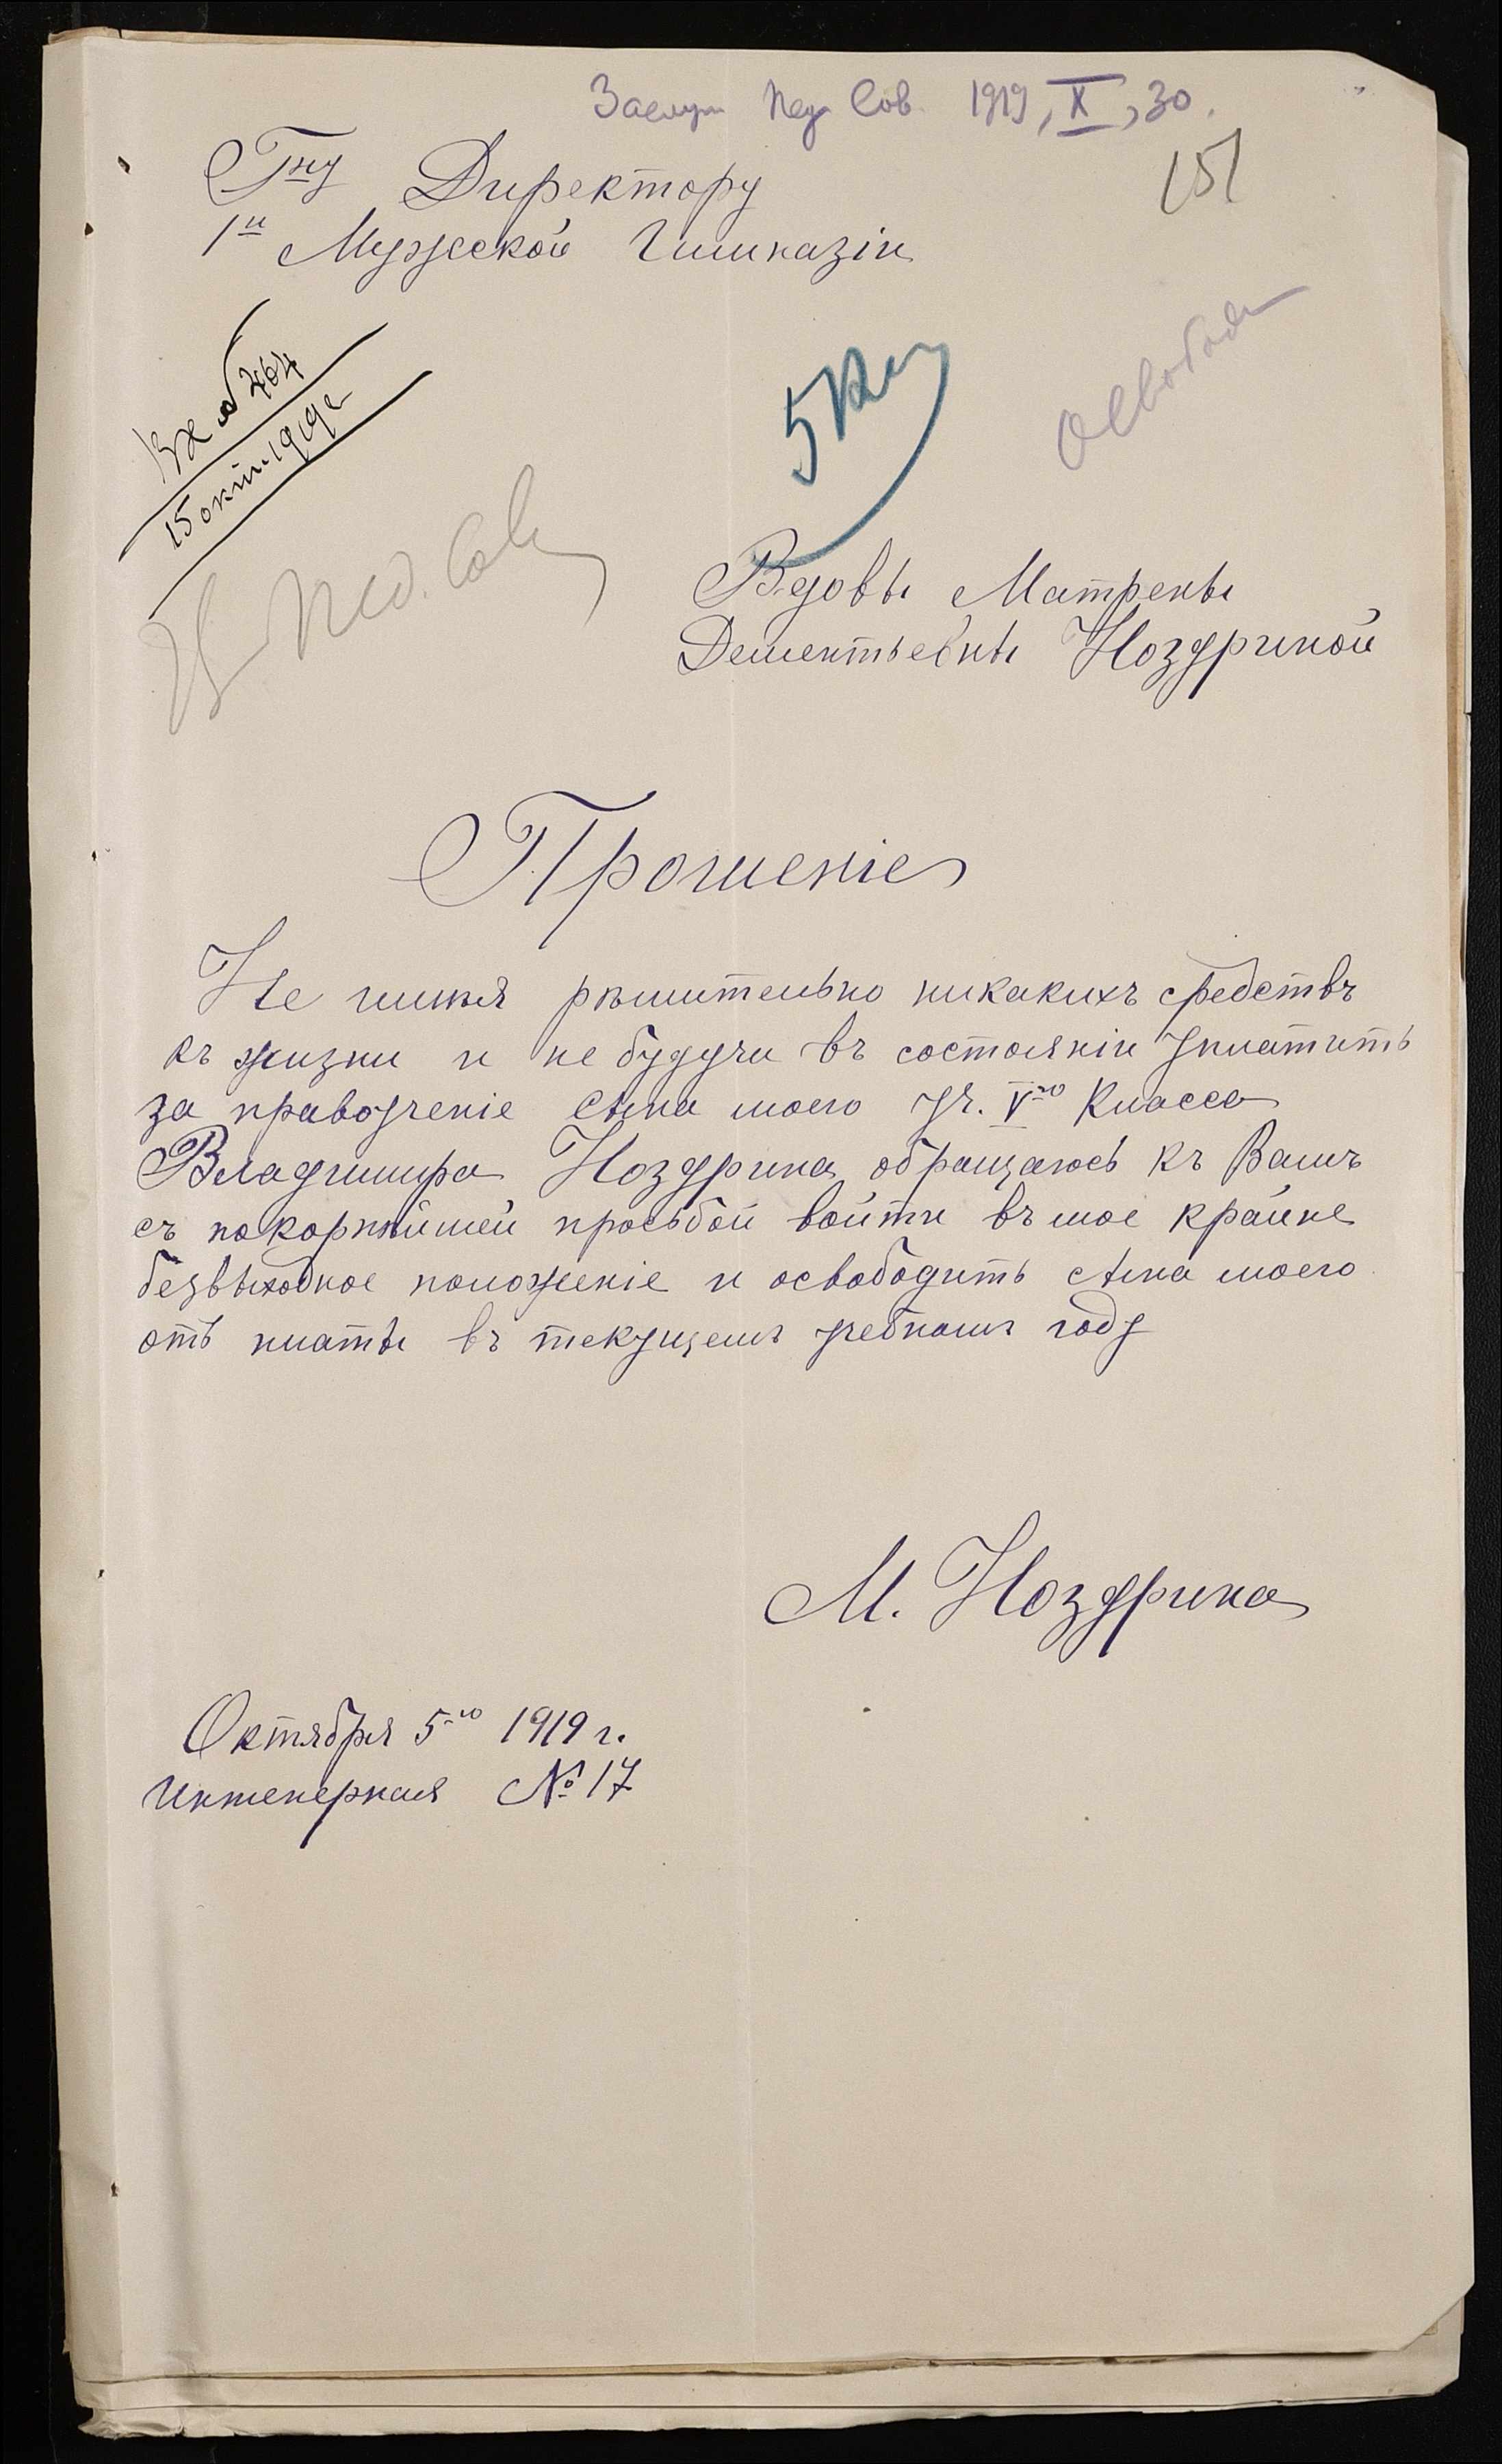 Заслуш Пед Сов. 1919, X, 30.
151
Гну Директору
1й Мужской Гимназіи
Вх № 764
15 окт. 1919 г
5 кл
Освобод
В Пед. Сов
Вдовы Матрены
Дементьевны Ноздриной
Прошеніе
Не имѣя рѣшительно никакихъ средствъ
къ жизни и не будучи въ состояніи уплатить
за правоученіе сына моего уч. Vго класса
Владимира Ноздрина обращаюсь къ Вамъ
съ покорнѣйшей просьбой войти въ мое крайне
безвыходное положеніе и освободить сына моего
отъ платы въ текущемъ учебномъ году
М. Ноздрина
Октября 5го 1919 г.
Инженерная № 17